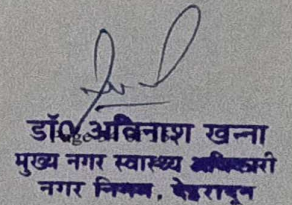 डॉ0 अविनाश खन्ना
मुख्य नगर स्वास्थ्य अधिकारी
नगर निगम, देहरादून